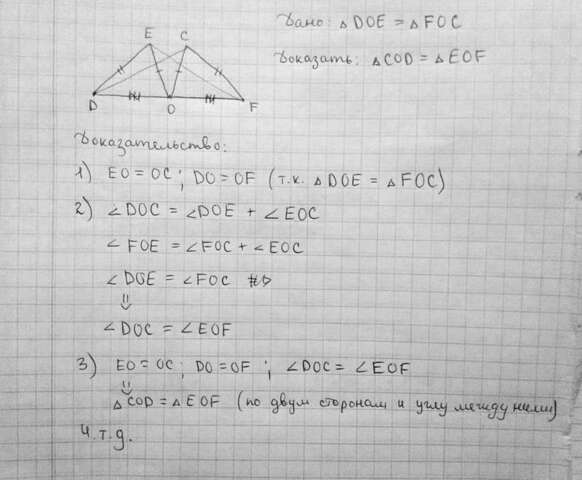 Дано: △DOE = △FOC
Доказать: △COD = △EOF
E C
D O F
Доказательство:
1) EO = OC ; DO = OF (т.к. △DOE = △FOC)
2) ∠DOC = ∠DOE + ∠EOC
∠FOE = ∠FOC + ∠EOC
∠DOE = ∠FOC
⇓
∠DOC = ∠EOF
3) EO = OC ; DO = OF ; ∠DOC = ∠EOF
⇓
△COD = △EOF (по двум сторонам и углу между ними)
Ч.т.д.